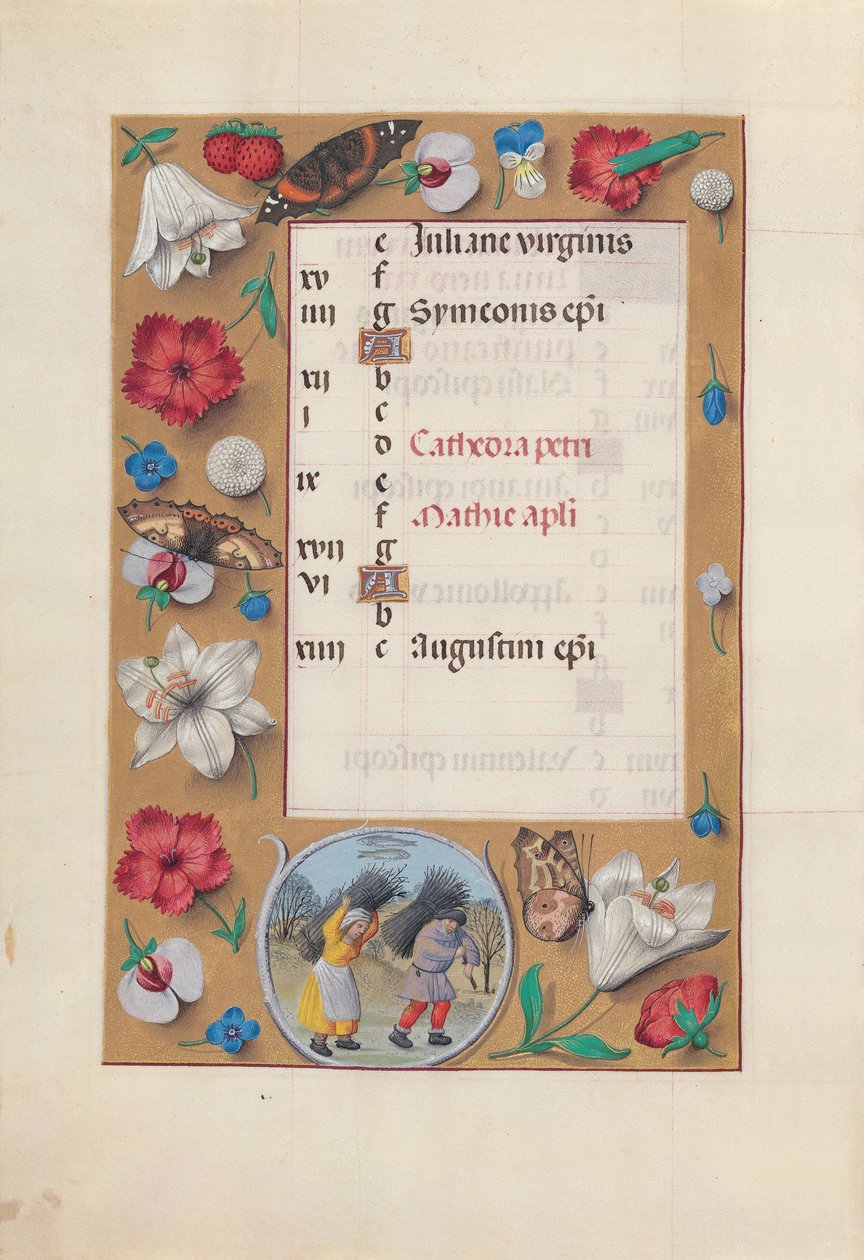 e Juliane virginis
xv f
iiii g Symeonis ep̄i
A
xii b
i c
d Cathedra petri
ix e
f Mathie apli
xvii g
vi A
b
xiiii c Augustini ep̄i